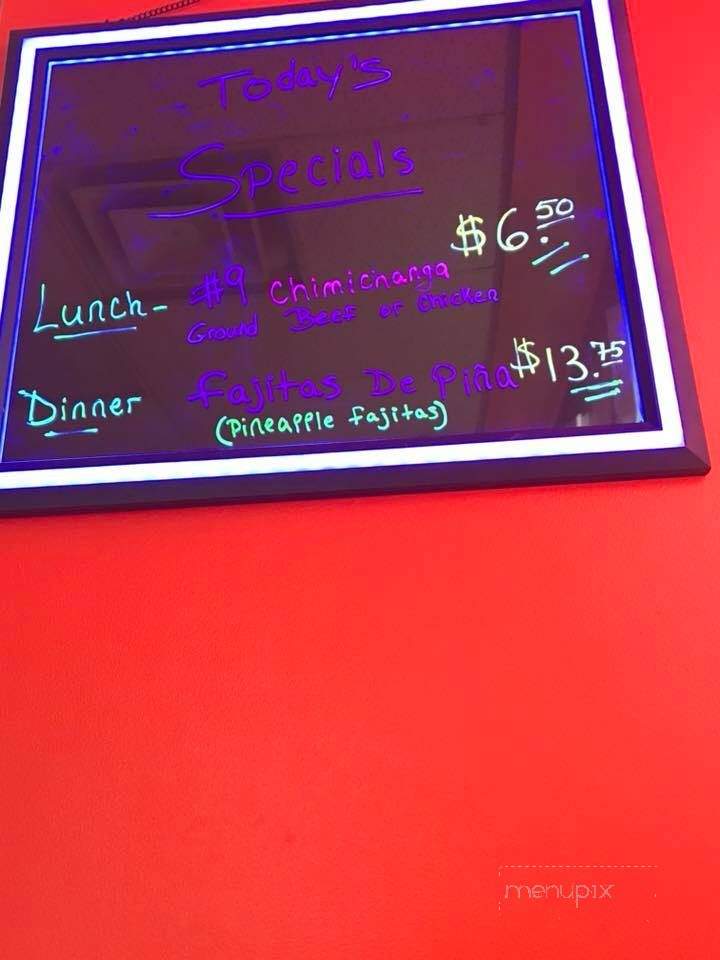 Today's
Specials
Lunch - #9 Chimichanga $6.50
Ground Beef or Chicken
Dinner Fajitas De Piña $13.75
(Pineapple fajitas)
menupix